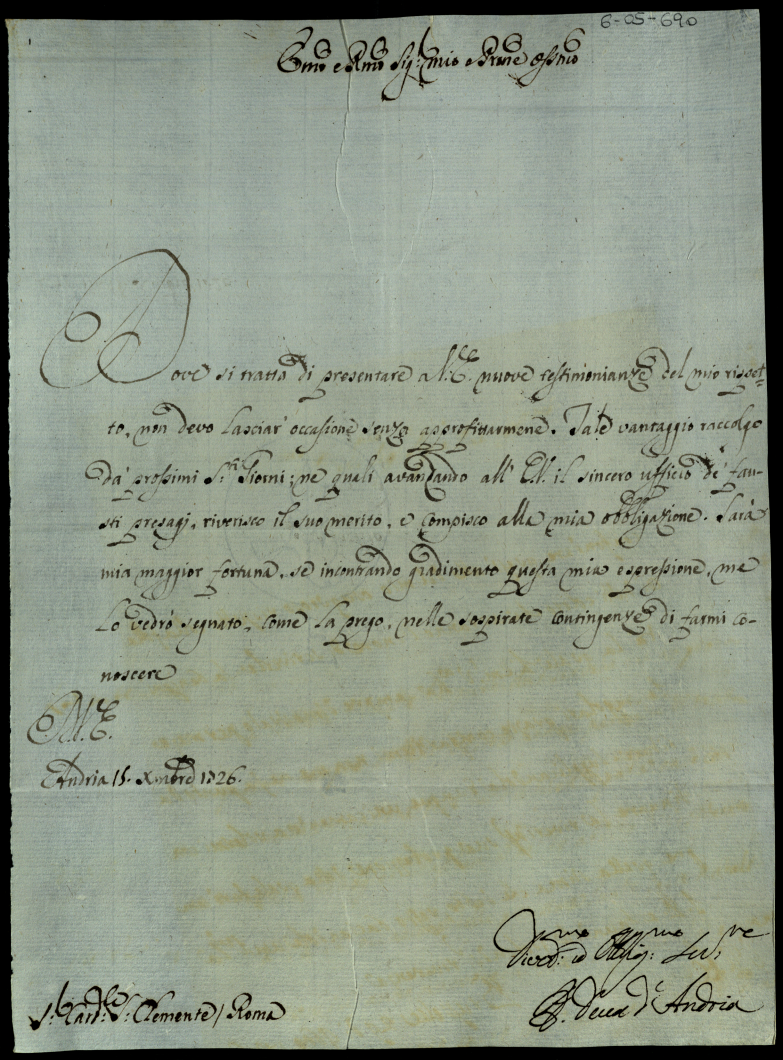 6-05-690
Emo e Rmo Sig:r mio e Prone Ossmo
Dove si tratta di presentare a V.E. nuove testimonianze del mio rispet-
to, non devo lasciar' occasione senza approfittarmene. Tale vantaggio raccolgo
da' prossimi S.ti Giorni; ne quali avanzando all' E.V. il sincero ufficio de' fau-
sti presagj, riverisco il suo merito, e compisco alla mia obbligazione. Sarà
mia maggior fortuna, se incontrando gradimento questa mia espressione, me
lo vedrò segnato, come la prego, nelle sospirate contingenze di farmi co-
noscere
V.E.
Andria 15. Xmbre 1726.
Divot:mo ed Obblig:mo Ser.re
Duca d'Andria
S.r Card.le S. Clemente / Roma